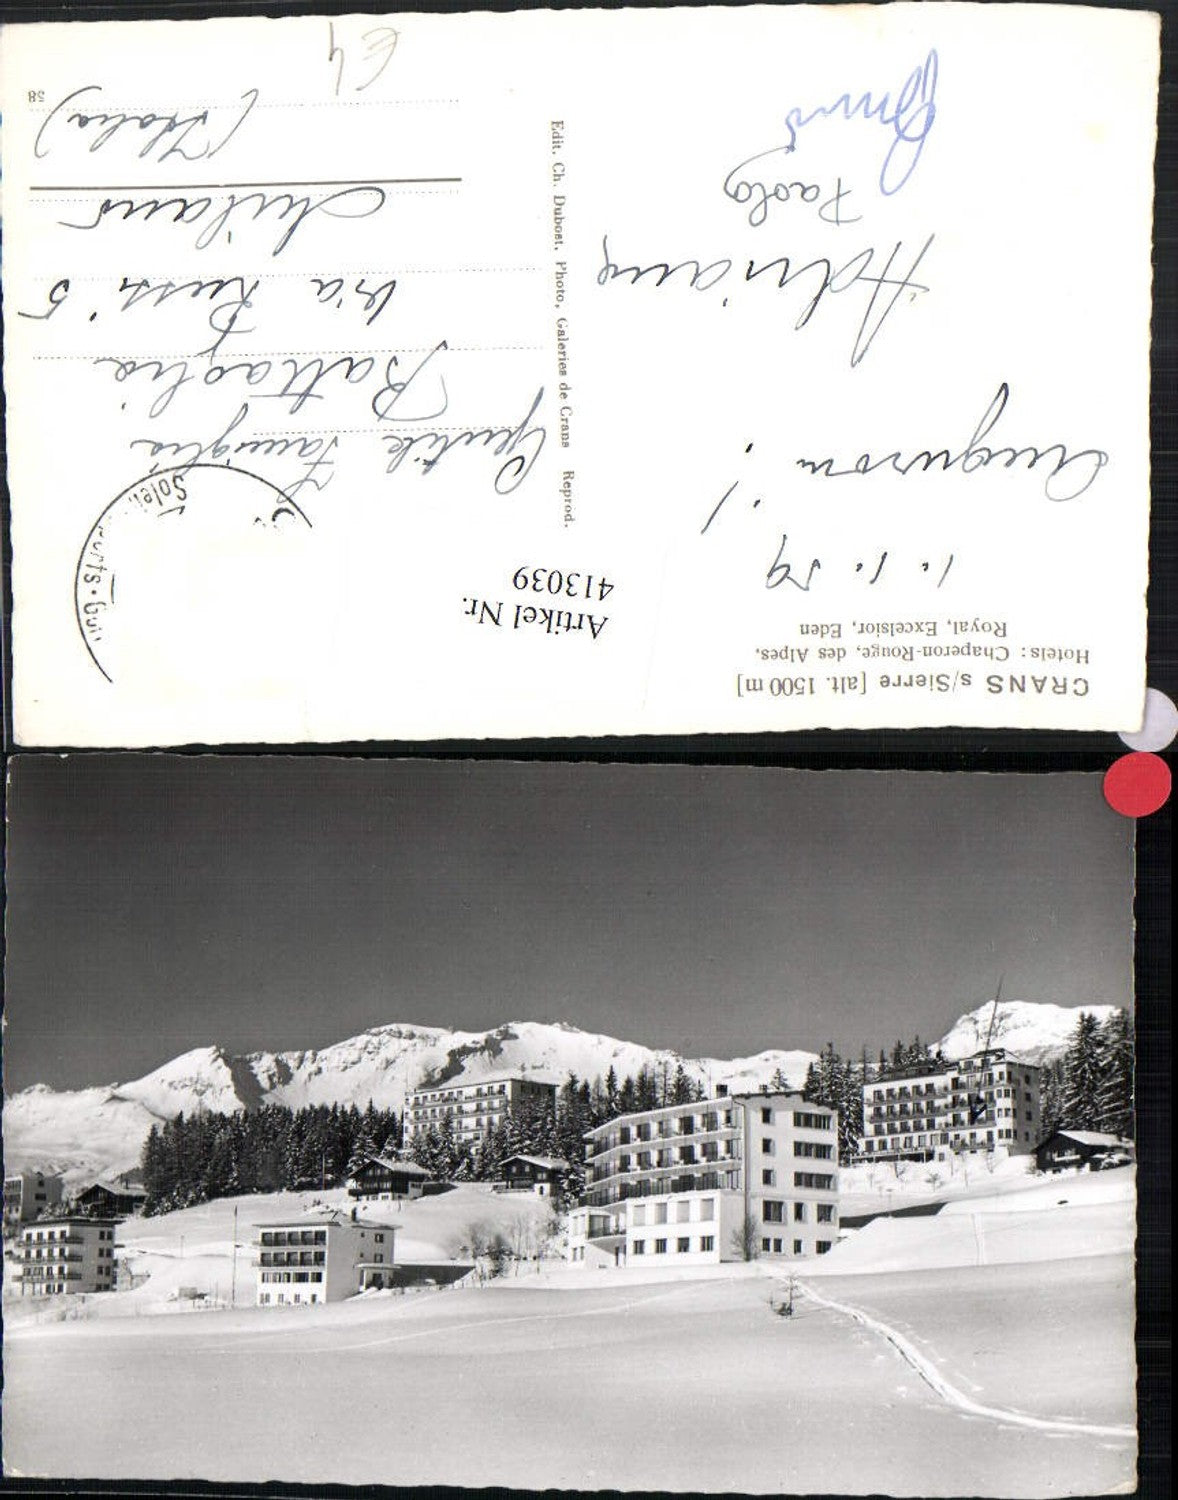 CRANS s/Sierre [alt. 1500 m]
Hotels: Chaperon-Rouge, des Alpes,
Royal, Excelsior, Eden
1. 1. 59
Auguroni!!
Adriana
Paolo
Edit. Ch. Dubost, Photo, Galeries de Crans Reprod.
Artikel Nr.
413039
Solei
orts • Gol
Gentile Famiglia
Battaglia
Via Rossi 5
Milano
(Italia)
58
€ 4